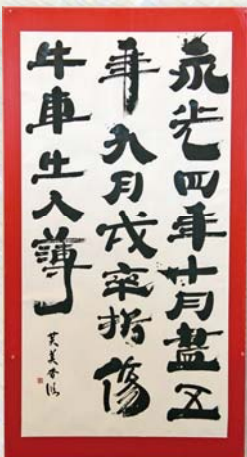 永光四年十月盡五
年九月戍卒折傷
牛車出入薄
芙美香臨